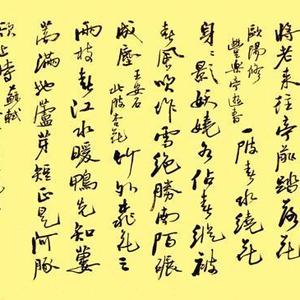 将老来往亭前踏落花
歐陽修
豐樂亭遊春
一陂春水繞花
身々影妖嬈各佔春縱被
春風吹作雪絶勝南陌碾
成塵
王安石
北陂杏花
竹外桃花三
兩枝春江水暖鴨先知蔞
蒿滿地蘆芽短正是河豚
欲上時
蘇軾